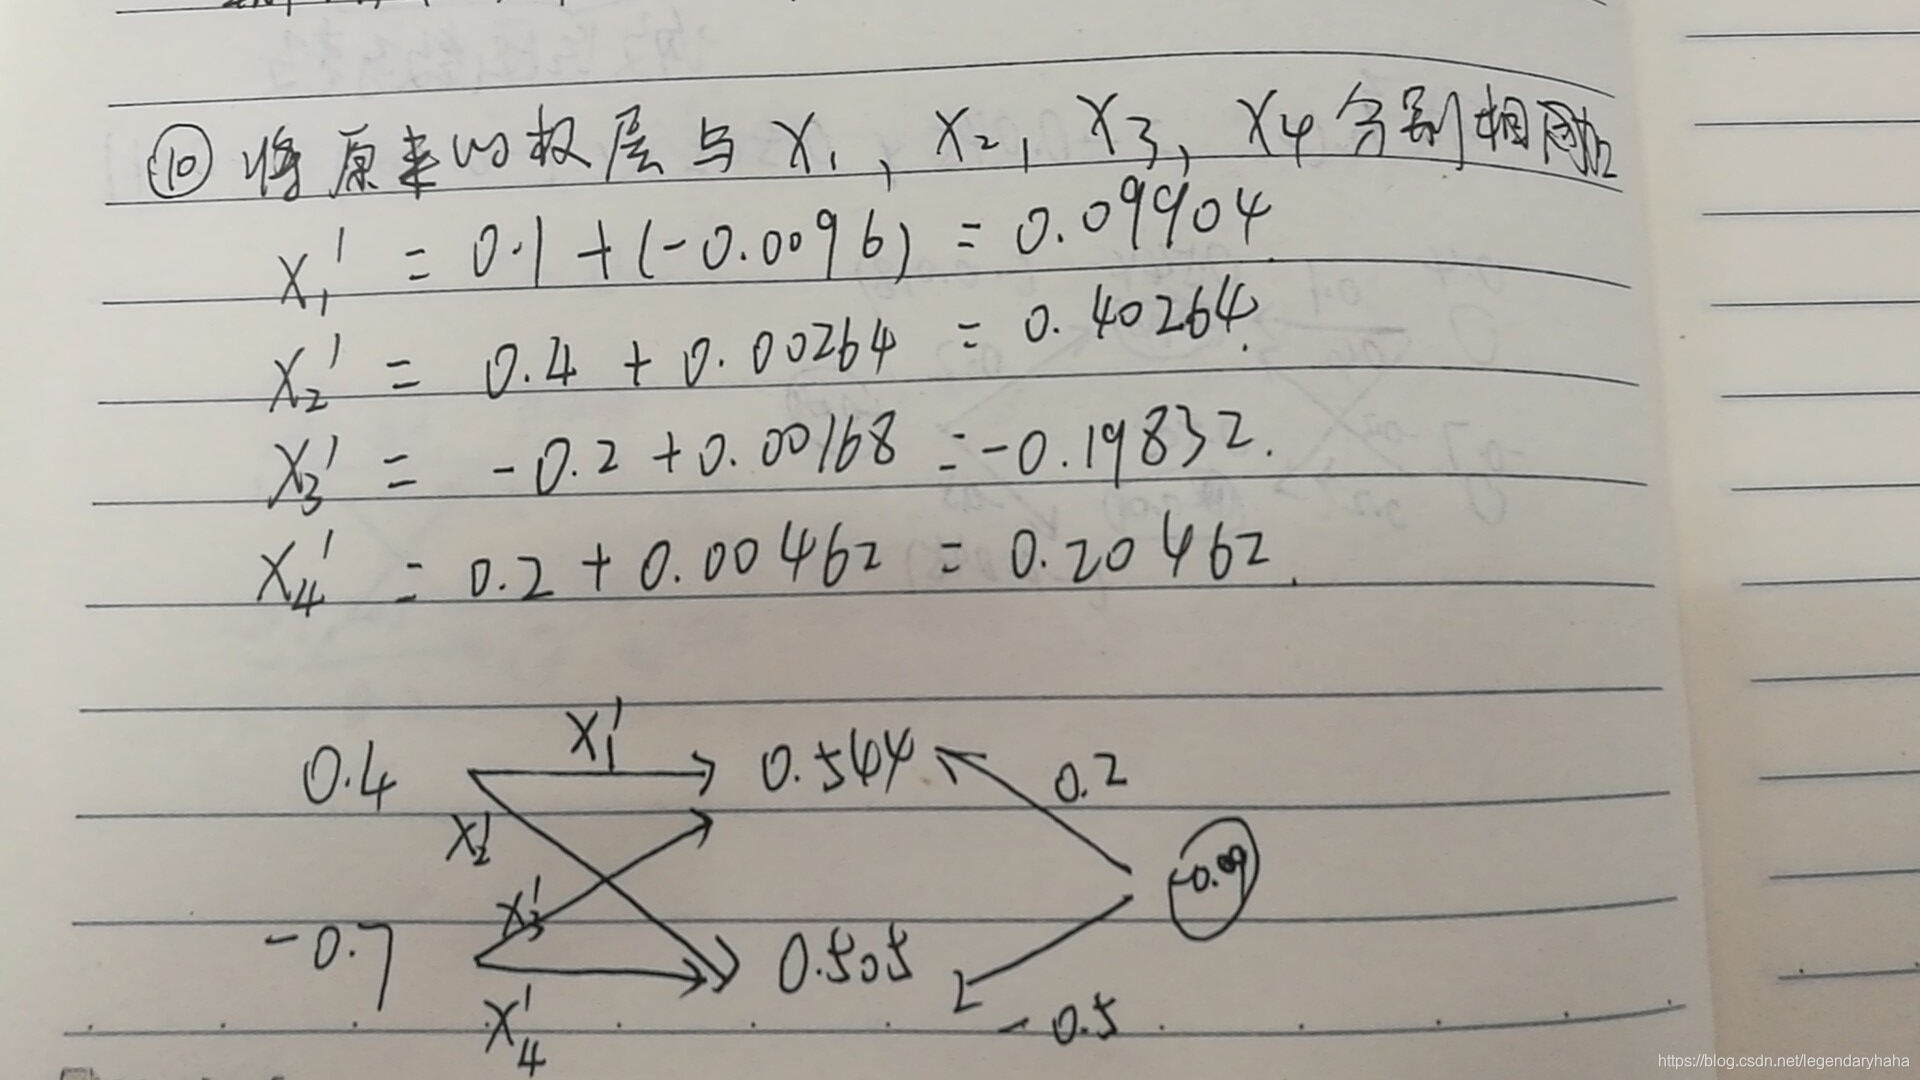 ⑩ 将原来的权层与 X₁, X₂, X₃, X₄ 分别相加
X₁' = 0.1 + (-0.0096) = 0.09904.
X₂' = 0.4 + 0.00264 = 0.40264.
X₃' = -0.2 + 0.00168 = -0.19832.
X₄' = 0.2 + 0.00462 = 0.20462.
0.4 X₁' 0.544 0.2
X₂'
-0.09
X₃'
-0.7 0.505
X₄' -0.5
https://blog.csdn.net/legendaryhaha